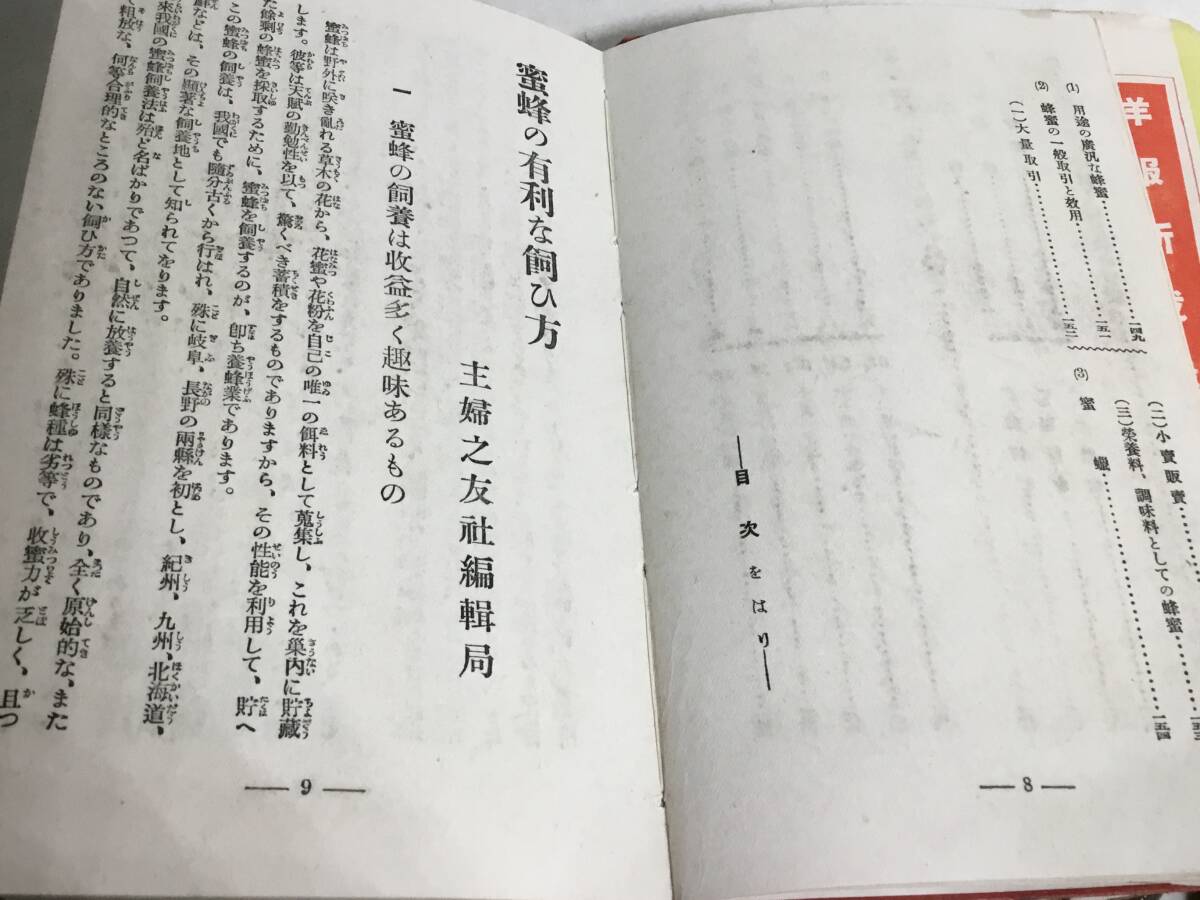 (1) 用途の廣汎な蜂蜜……一四九
(2) 蜂蜜の一般取引と效用……一五一
(一)大量取引……一五二
(二)小賣販賣……一五三
(三)榮養料、調味料としての蜂蜜……一五四
(3) 蜜蠟
―目次をはり―
― 8 ―
蜜蜂の有利な飼ひ方
主婦之友社編輯局
一 蜜蜂の飼養は收益多く趣味あるもの
蜜蜂は野外に咲き亂れる草木の花から、花蜜や花粉を自己の唯一の餌料として蒐集し、これを巢内に貯藏
します。彼等は天賦の勤勉性を以て、驚くべき蓄積をするものでありますから、その性能を利用して、貯へ
た餘剩の蜂蜜を採取するために、蜜蜂を飼養するのが、卽ち養蜂業であります。
この蜜蜂の飼養は、我國でも隨分古くから行はれ、殊に岐阜、長野の兩縣を初とし、紀州、九州、北海道、
鮮などは、その顯著な飼養地として知られてをります。
來我國の蜜蜂飼養法は殆ど名ばかりであつて、自然に放養すると同樣なものであり、全く原始的な、また
て粗放な、何等合理的なところのない飼ひ方でありました。殊に蜂種は劣等で、收蜜力が乏しく、且つ
― 9 ―